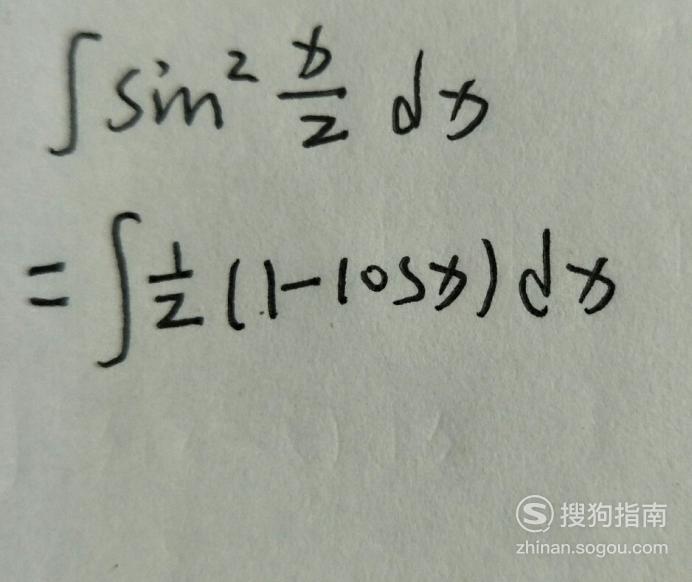 ∫ sin² x/2 dx
= ∫ 1/2 (1-cosx) dx
搜狗指南
zhinan.sogou.com